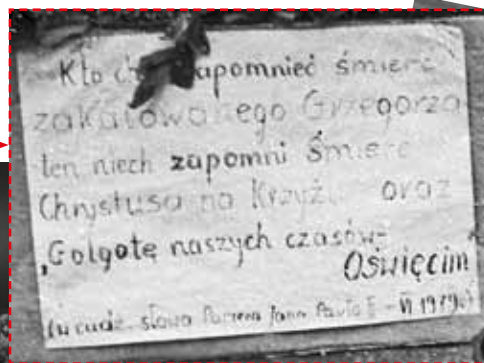 Kto chce zapomnieć śmierć
zakatowanego Grzegorza
ten niech zapomni śmierć
Chrystusa na Krzyżu oraz
„Golgotę naszych czasów-
Oświęcim"
słowa Jana Pawła II - VI 1979